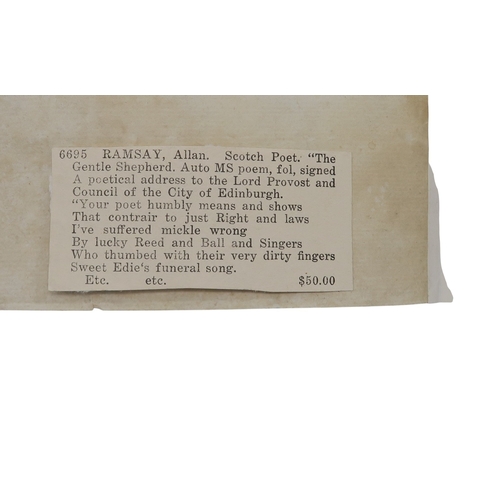 6695 RAMSAY, Allan. Scotch Poet. "The
Gentle Shepherd. Auto MS poem, fol, signed
A poetical address to the Lord Provost and
Council of the City of Edinburgh.
"Your poet humbly means and shows
That contrair to just Right and laws
I've suffered mickle wrong
By lucky Reed and Ball and Singers
Who thumbed with their very dirty fingers
Sweet Edie's funeral song.
Etc. etc. $50.00